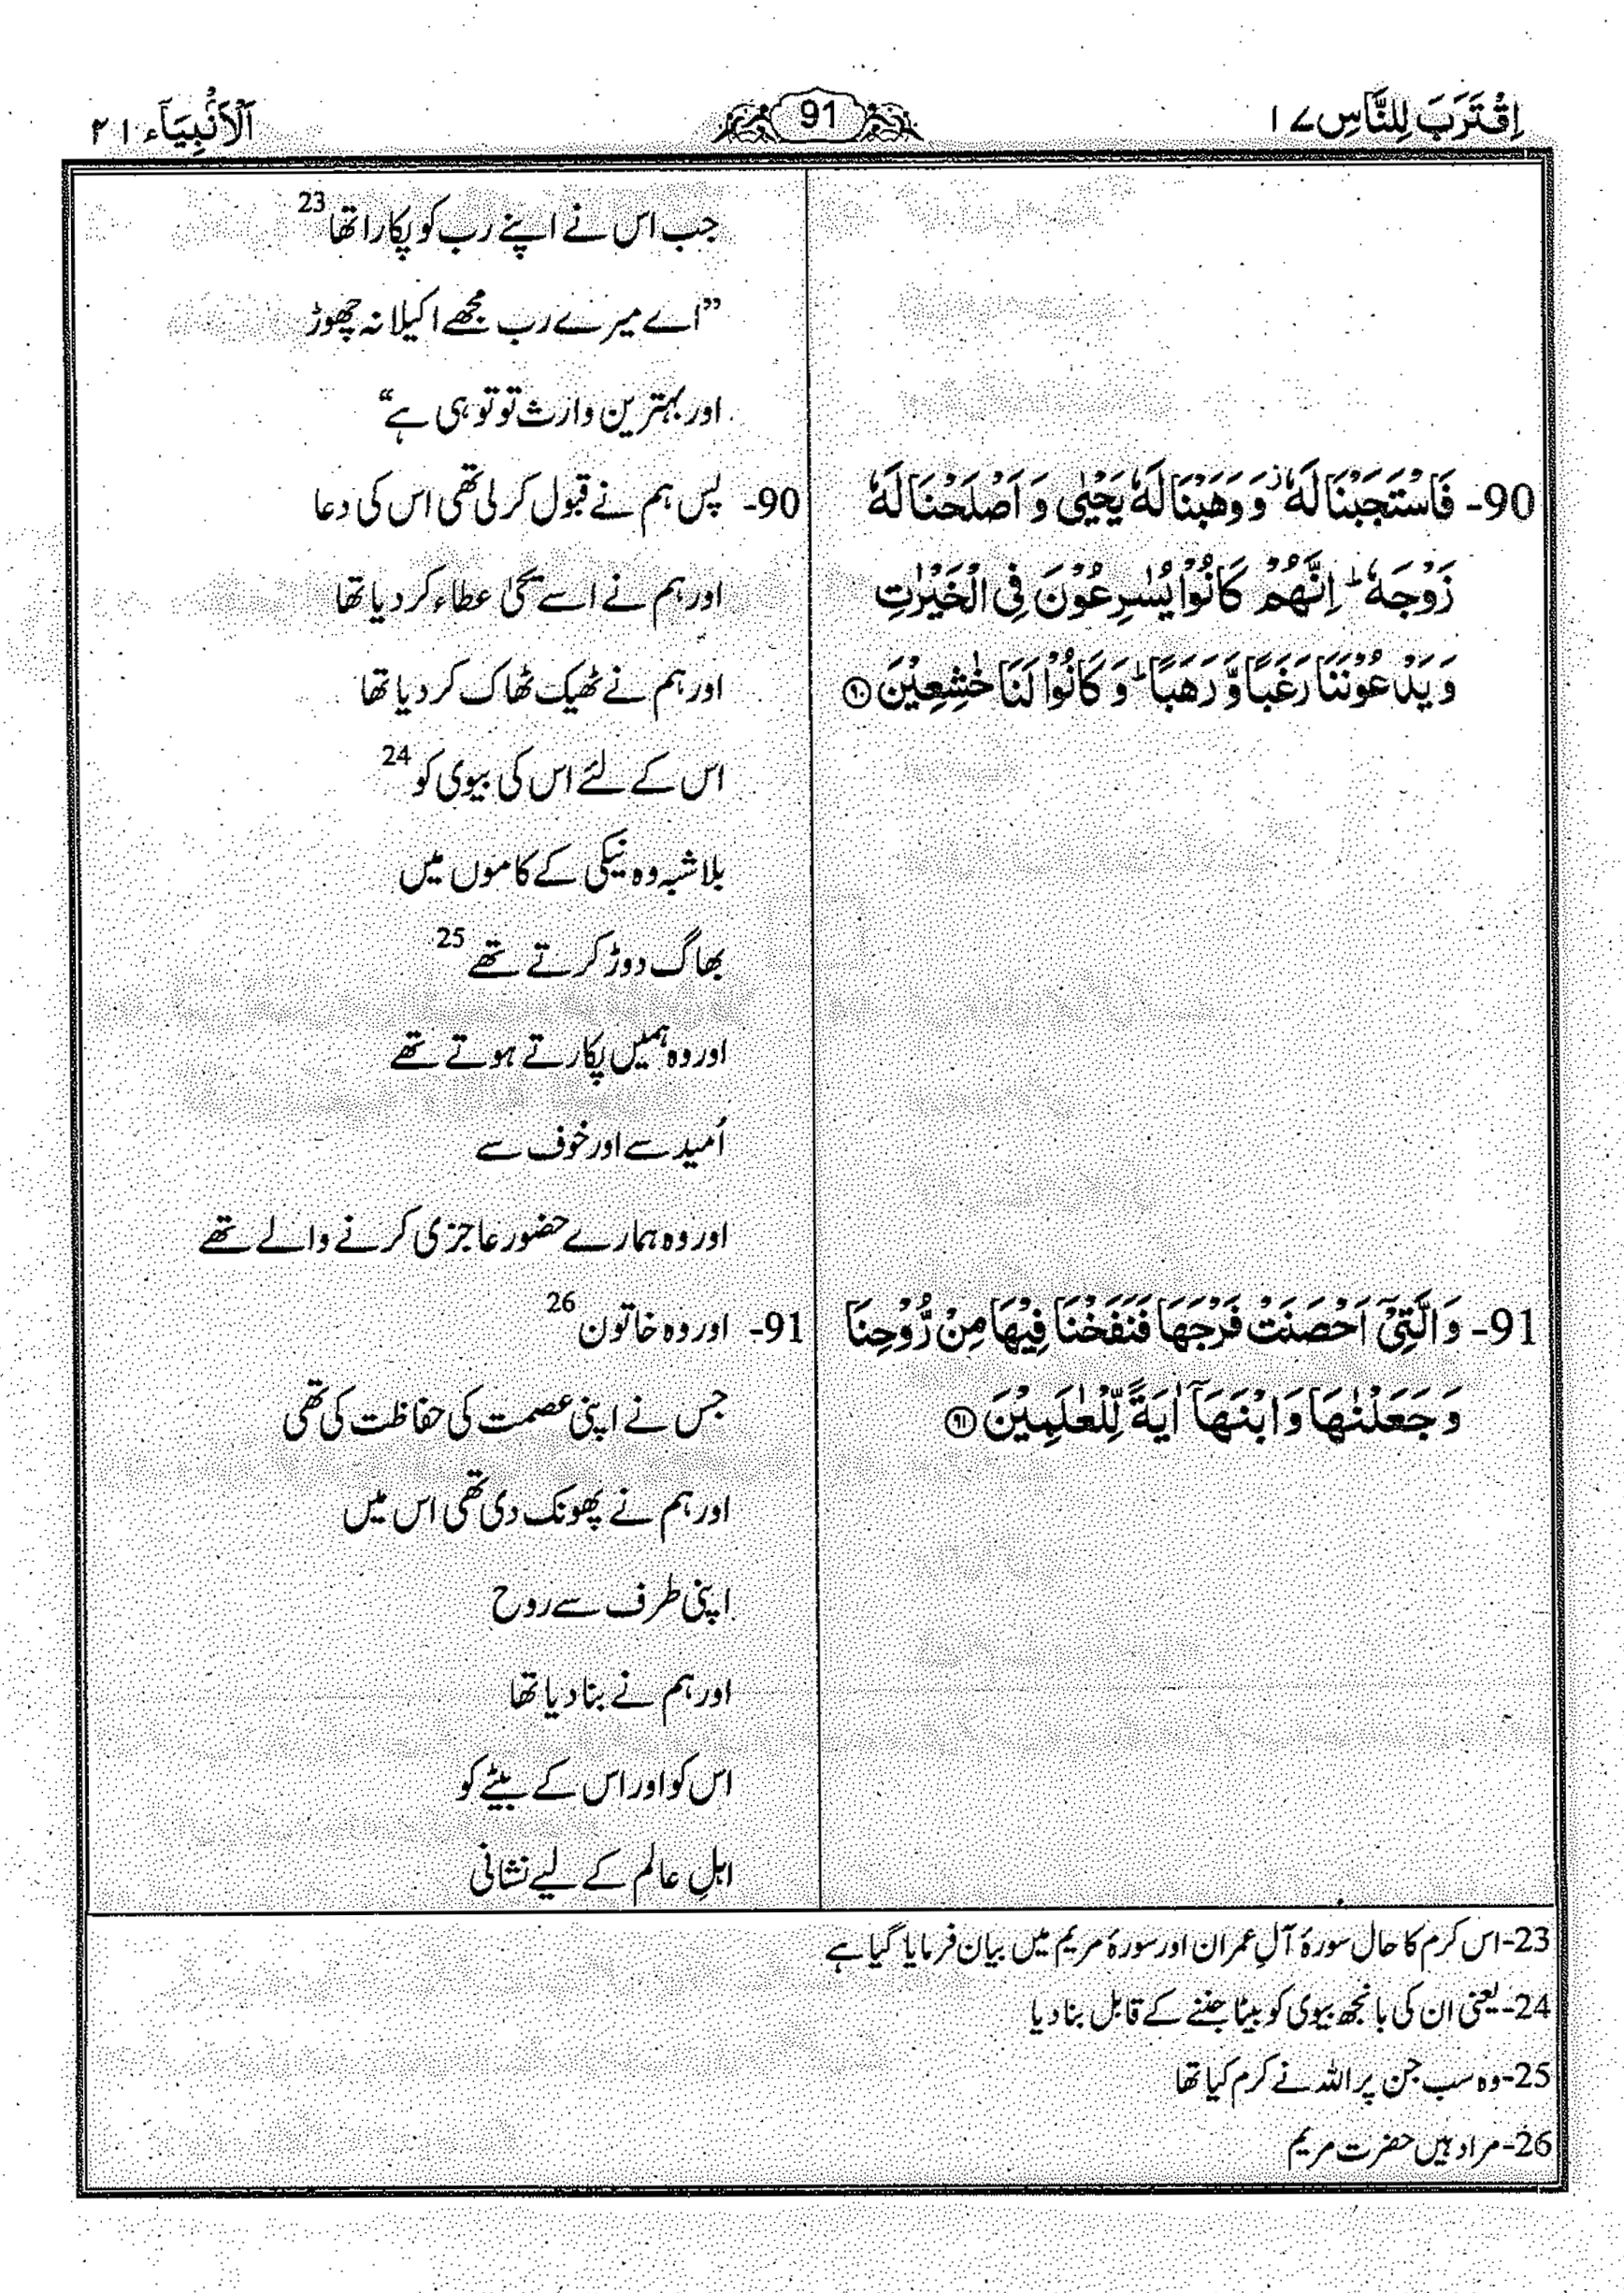 اِقْتَرَبَ لِلنَّاسِ ۱۷
91
اَلْاَنْۢبِیَآء ۲۱
جب اس نے اپنے رب کو پکارا تھا 23
”اے میرے رب مجھے اکیلا نہ چھوڑ
اور بہترین وارث تو تو ہی ہے“
90- فَاسْتَجَبْنَا لَهٗ ز وَ وَهَبْنَا لَهٗ یَحْیٰی وَ اَصْلَحْنَا لَهٗ
زَوْجَهٗ ؕ اِنَّهُمْ كَانُوْا یُسٰرِعُوْنَ فِی الْخَیْرٰتِ
وَ یَدْعُوْنَنَا رَغَبًا وَّ رَهَبًا ؕ وَ كَانُوْا لَنَا خٰشِعِیْنَ ۹۰
90- پس ہم نے قبول کر لی تھی اس کی دعا
اور ہم نے اسے یحییٰ عطاء کر دیا تھا
اور ہم نے ٹھیک ٹھاک کر دیا تھا
اس کے لئے اس کی بیوی کو 24
بلا شبہ وہ نیکی کے کاموں میں
بھاگ دوڑ کرتے تھے 25
اور وہ ہمیں پکارتے ہوتے تھے
اُمید سے اور خوف سے
اور وہ ہمارے حضور عاجزی کرنے والے تھے
91- وَ الَّتِیْۤ اَحْصَنَتْ فَرْجَهَا فَنَفَخْنَا فِیْهَا مِنْ رُّوْحِنَا
وَ جَعَلْنٰهَا وَ ابْنَهَاۤ اٰیَةً لِّلْعٰلَمِیْنَ ۹۱
91- اور وہ خاتون 26
جس نے اپنی عصمت کی حفاظت کی تھی
اور ہم نے پھونک دی تھی اس میں
اپنی طرف سے روح
اور ہم نے بنا دیا تھا
اس کو اور اس کے بیٹے کو
اہلِ عالم کے لیے نشانی
23- اس کرم کا حال سورۂ آلِ عمران اور سورۂ مریم میں بیان فرمایا گیا ہے
24- یعنی ان کی بانجھ بیوی کو بیٹا جننے کے قابل بنا دیا
25- وہ سب جن پر اللہ نے کرم کیا تھا
26- مراد ہیں حضرت مریم